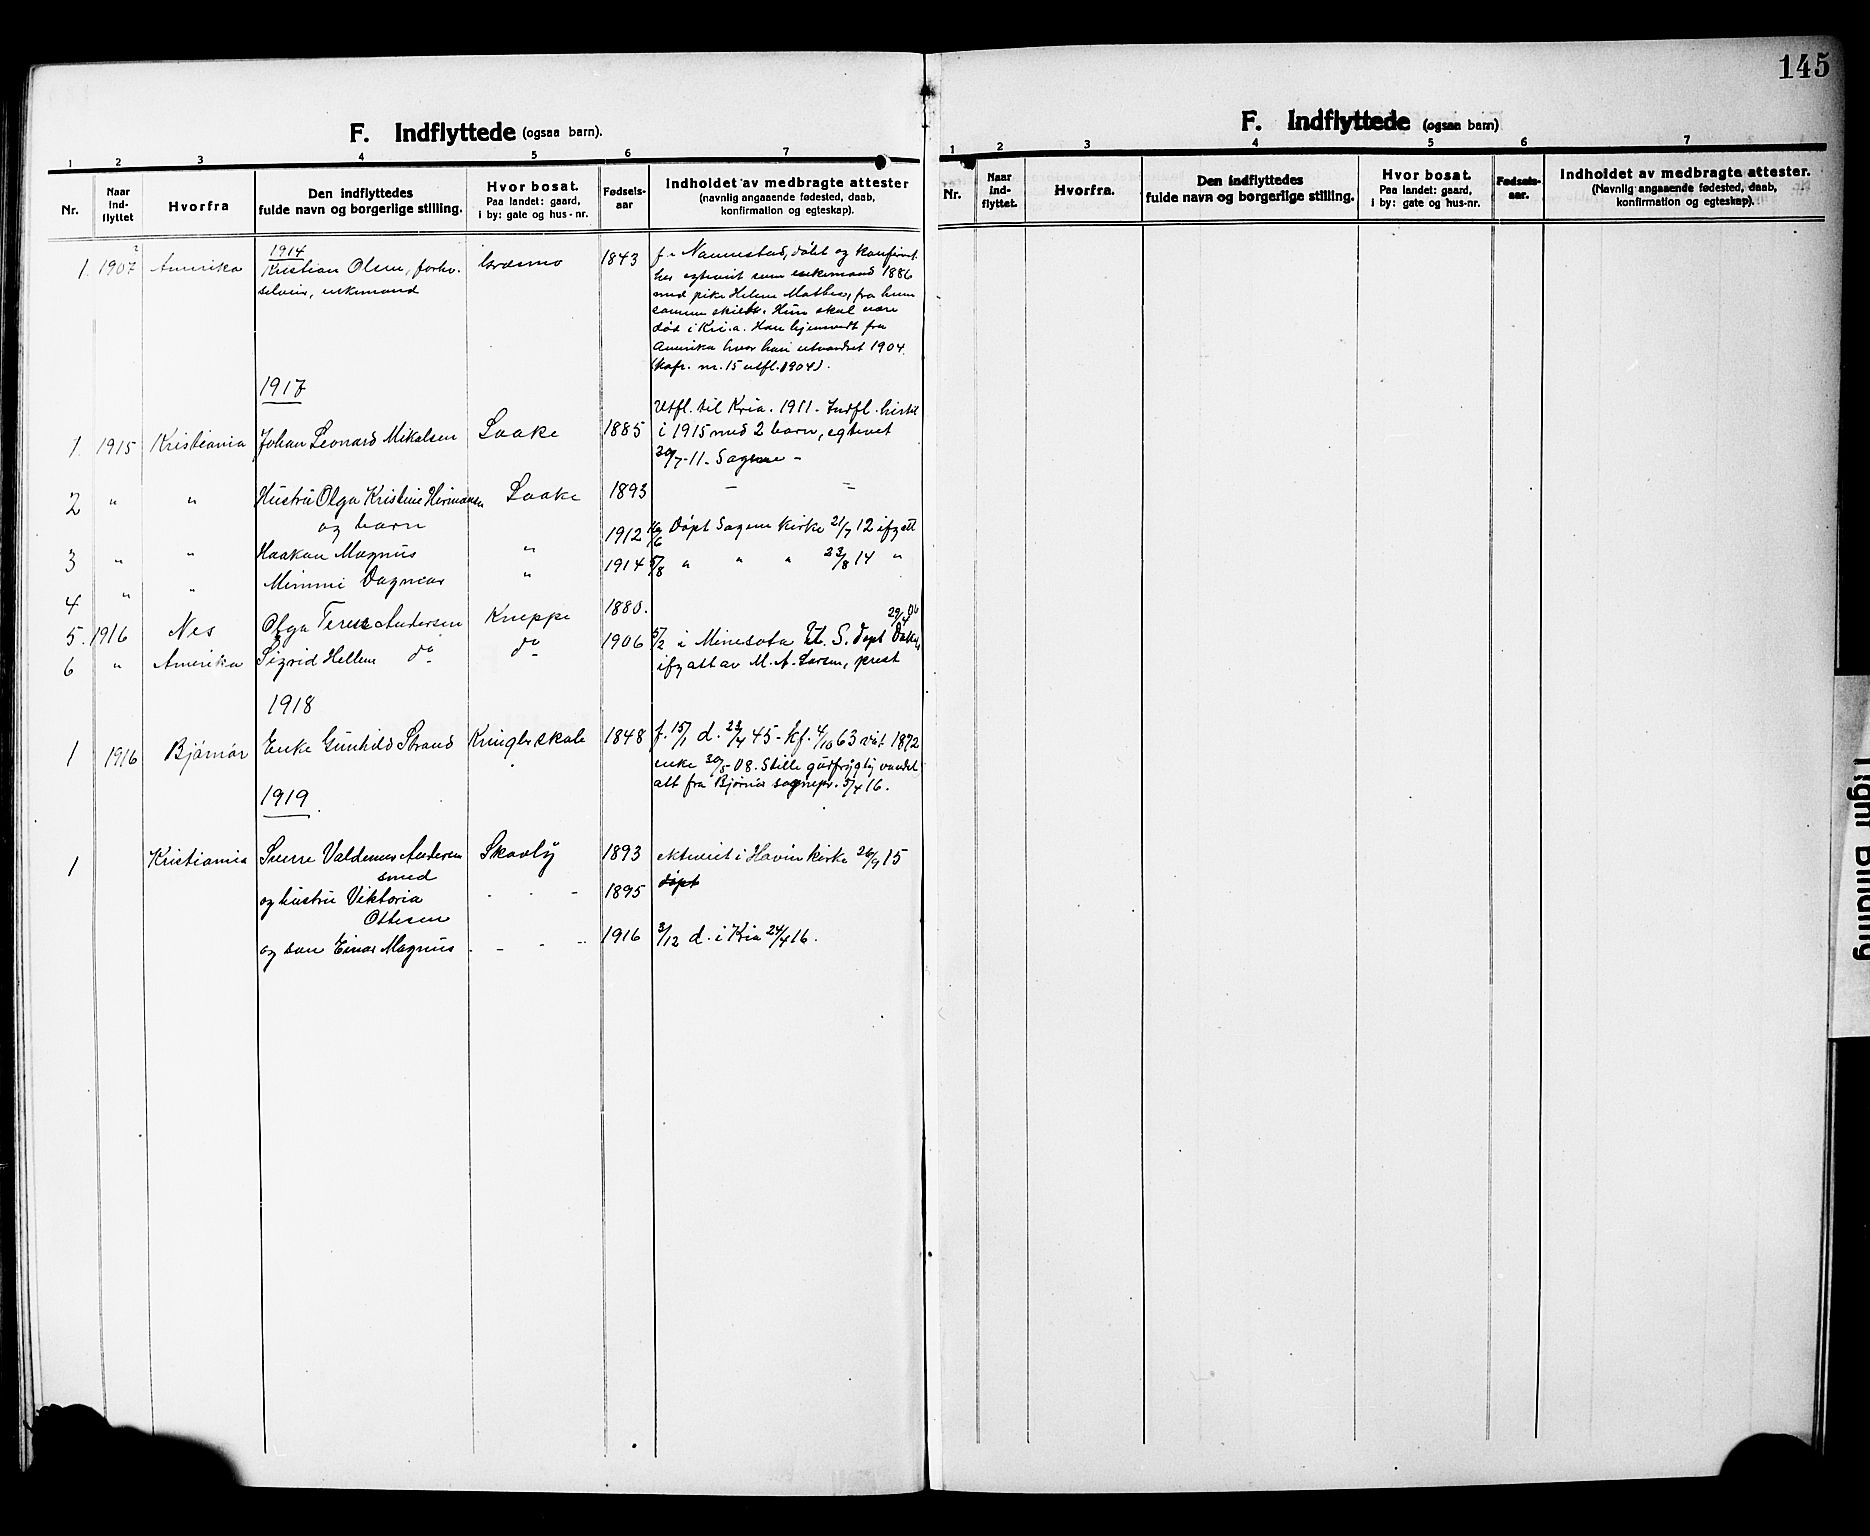 145
F. Indflyttede (ogsaa barn).
1 2 3 4 5 6 7
Nr.
Naar ind-flyttet
Hvorfra
Den indflyttedes fulde navn og borgerlige stilling.
Hvor bosat. Paa landet: gaard, i by: gate og hus-nr.
Fødsels-aar
Indholdet av medbragte attester (navnlig angaaende fødested, daab, konfirmation og egteskap).
1914
1. 1907 Amerika Kristian Olsen, 1843 f. i Nannestad, døbt og konfirmt.
enkemand
her egteviet som enkemand 1886
med pike Helene
Hun skal være
død i Kr.i.a. Han hjemvendt fra
Amerika hvor han utvandret 1904.
nr. 15 utfl. 1904).
1917
Utfl. til Kria. 1911. Indfl. hertil
1. 1915 Kristiania Johan Leonard Mikalsen Laake 1885 i 1915 med 2 barn, egteviet
30/7-11. Sagene -
2 " " Hustru Olga Kristine Hermansen Laake 1893 - =
og barn
3 " " Haakon Magnus " 1912 16/6 Døpt Sagene kirke 21/7 12 ifg att
4 " " Mimmi Dagmar " 1914 5/8 " " " 23/8 14 "
5. 1916 Nes Olga Andersen Kneppe 1880.
29/4 06
6 " Amerika Sigrid Hellem do do 1906 5/2 i Minesota U. S. døpt
ifg att av M. A. Larsen, prest
1918
1 1916 Bjørnør Enke Gunhild Strand Kringlerskale 1848 f. 15/1 d. 23/4 45 - kf. 4/10 63 viet 1872
enke 30/5-08. Stille gudfrygtig vandel
att fra Bjørnør sognepr. 3/4 16.
1919
1 Kristiania Sverre Valdemar Andersen Skovly 1893 ektviet i Hovin kirke 26/9 15
smed
og hustru Viktoria - - - 1895 døpt
Ottesen
og søn Einar Magnus - - - - 1916 3/12 d. i Kria 24/4 16.
F. Indflyttede (ogsaa barn)
1 2 3 4 5 6 7
Nr.
Naar ind-flyttet.
Hvorfra.
Den indflyttedes fulde navn og borgerlige stilling.
Hvor bosat. Paa landet: gaard, i by: gate og hus-nr.
Fødsels-aar.
Indholdet av medbragte attester. (Navnlig angaaende fødested, daab, konfirmation og egteskap).